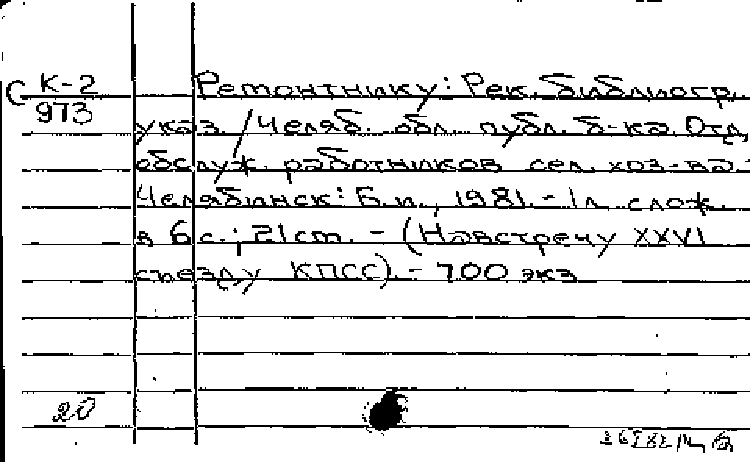 С К-2
973
Ремонтнику: Рек. библиогр.
указ. / Челяб. обл. публ. б-ка. Отд.
обслуж. работников сел. хоз-ва.-
Челябинск: Б.и., 1981. - 1л. слож.
в 6 с.; 21 cm. - (Навстречу XXVI
съезду КПСС). - 700 экз
20